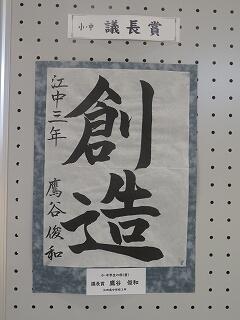 小・中 議長賞
創造
江中三年 鷹谷俊和
小・中学生の部(書)
議長賞 鷹谷 俊和